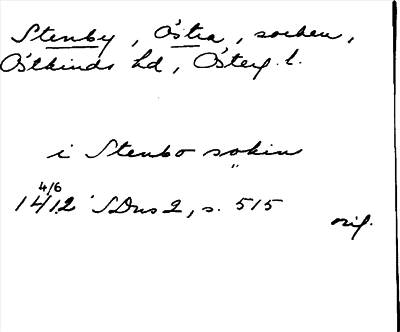 Stenby, Östra, socken,
Östkinds hd, Österg. l.
i Stenbo sokin
4/6
1412 SDns 2, s. 515
orig.